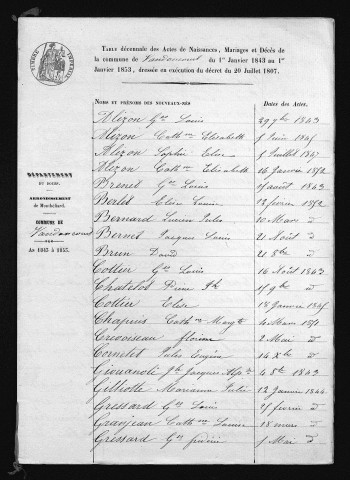 TIMBRE IMPERIAL
TABLE décennale des Actes de Naissances, Mariages et Décès de
la commune de Vandoncourt du 1er Janvier 1843 au 1er
Janvier 1853, dressée en exécution du décret du 20 Juillet 1807.
DÉPARTEMENT
DU DOUBS.
ARRONDISSEMENT
de Montbéliard.
COMMUNE DE
Vandoncourt
AN 1843 à 1853.
NOMS ET PRÉNOMS DES NOUVEAUX-NÉS
Dates des Actes.
Mizon Ge Louis 29 9bre 1843
Mizon Cathne Elisabeth 5 Juin 1845
Mizon Sophie Elise 5 Juillet 1847
Mizon Cathne Elisabeth 16 Janvier 1852
Ge Louis août 1843
Louise 12 février 1852
Bernard Lucien Jules 10 Mars d
Bernet Jacques Louis 21 Août d
Brun David 21 8bre d
Cottier Ge Louis 16 Août 1843
Chatelot Pierre 9bre d
Cottier Elise 18 Janvier 1845
Chapuis Cathne Margte 4 Mars 1851
florine 2 Mai d
Jules Eugène 14 Xbre d
Jacques 4 8bre 1843
Gilliotte Marianne Julie 12 Janvier 1844
Grissard Ge Louis février d
Granjean Cathne Louise 18 mars d
Grissard Ge frédéric 1 Mai d